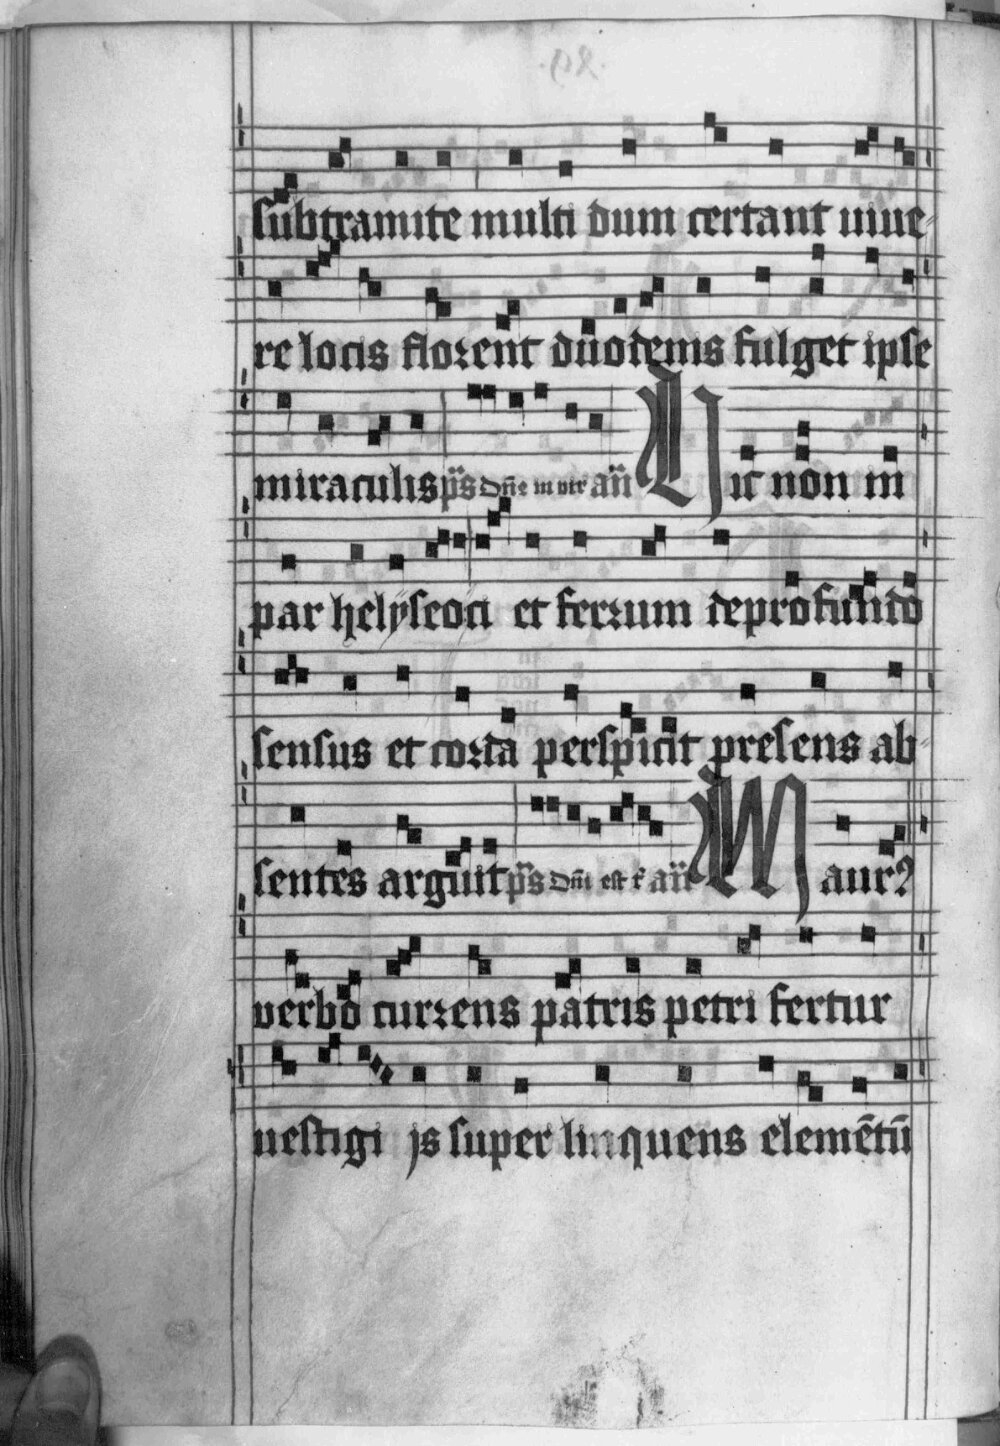 subtramite multi dum certant uiue-
re locis florent duodenis fulget ipse
miraculis p̄s Dn̄e in vir añ Hic non in
par helyseo ci et ferrum deprofundo
sensus et corda perspicit presens ab-
sentes arguit p̄s Dn̄i est t̄ añ Maur?
verbo currens patris petri fertur
uestigi js super linquens elemētū